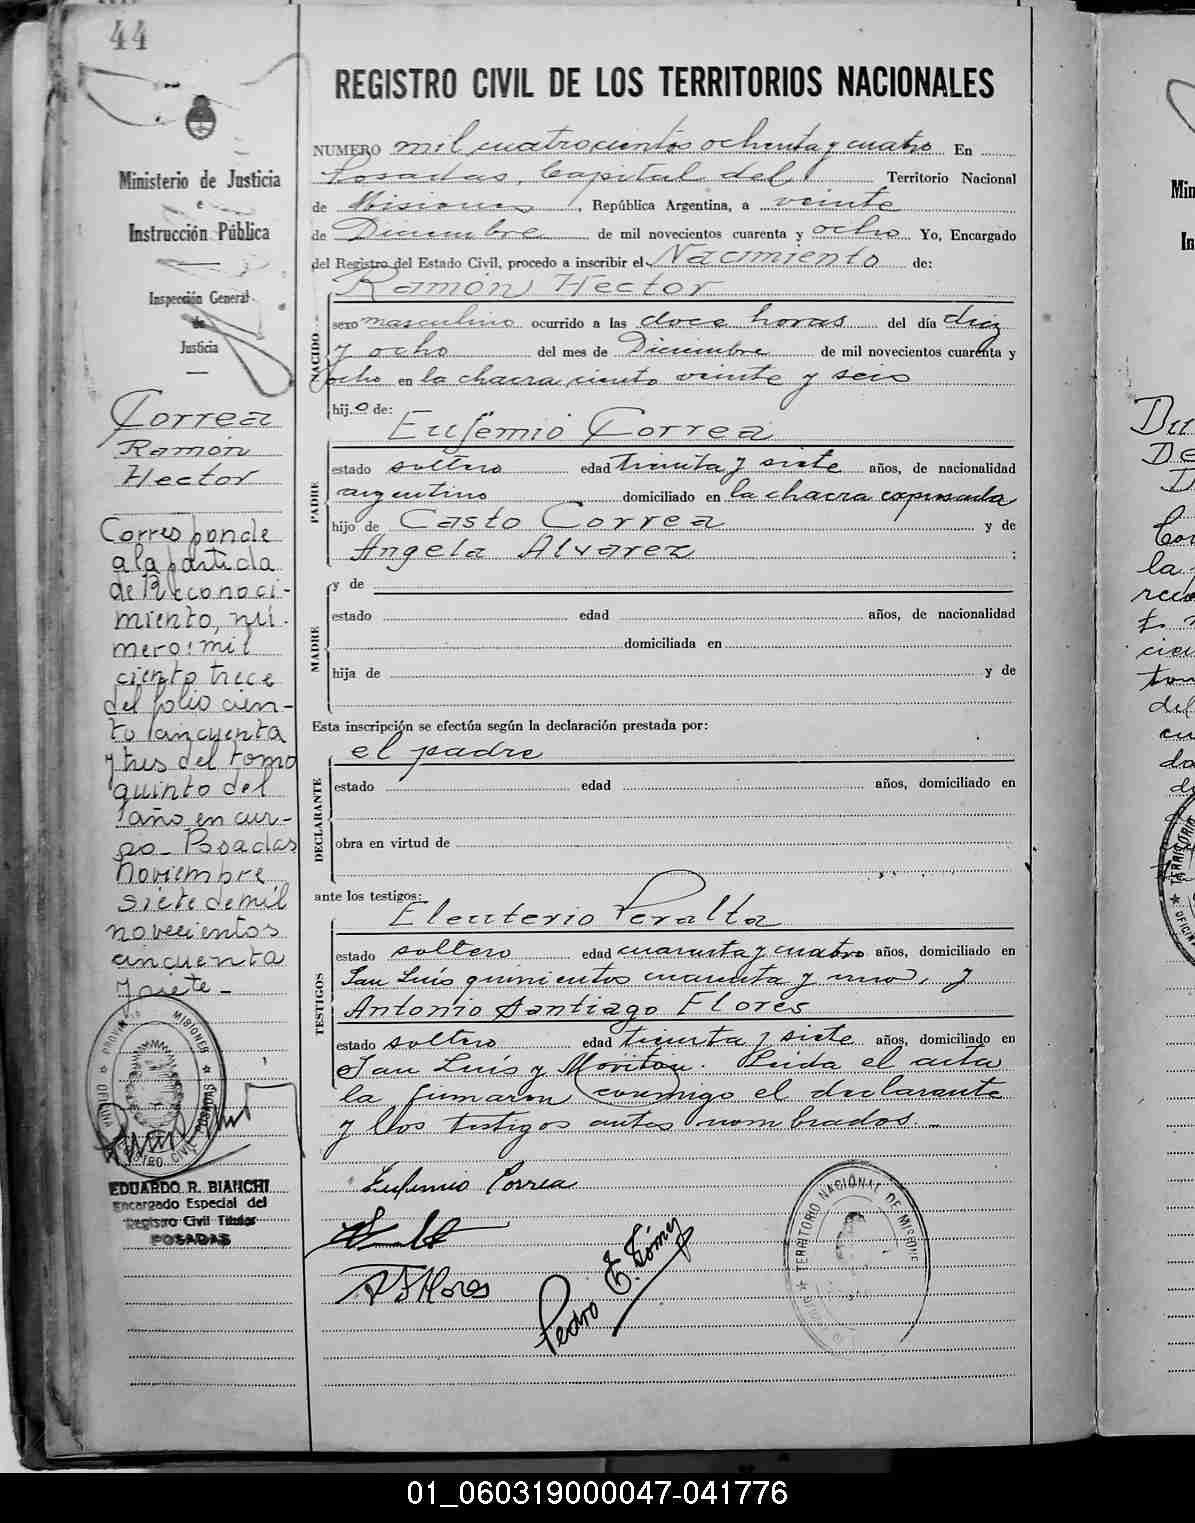 44
Ministerio de Justicia
e
Instrucción Pública
Inspección General
de
Justicia
Correa
Ramón
Hector
Corresponde
a la partida
de Reconoci-
miento, nú-
mero: mil
ciento trece
del folio cien-
to cincuenta
y tres del tomo
quinto del
año en cur-
so_ Posadas
Noviembre
siete de mil
novecientos
cincuenta
y siete_
MISIONES
POSADAS
EDUARDO R. BIANCHI
Encargado Especial del
Registro Civil Titular
POSADAS
REGISTRO CIVIL DE LOS TERRITORIOS NACIONALES
NUMERO mil cuatrocientos ochenta y cuatro En
Posadas, Capital del Territorio Nacional
de Misiones, República Argentina, a veinte
de Diciembre de mil novecientos cuarenta y ocho Yo, Encargado
del Registro del Estado Civil, procedo a inscribir el Nacimiento de:
Ramón Hector
NACIDO
sexo masculino ocurrido a las doce horas del día diez
y ocho del mes de Diciembre de mil novecientos cuarenta y
ocho en la chacra ciento veinte y seis
hijo de:
Eufemio Correa
PADRE
estado soltero edad treinta y siete años, de nacionalidad
argentino domiciliado en la chacra expresada
hijo de Casto Correa y de
Angela Alvarez ;
MADRE
y de
estado edad años, de nacionalidad
domiciliada en
hija de y de
Esta inscripción se efectúa según la declaración prestada por:
el padre
DECLARANTE
estado edad años, domiciliado en
obra en virtud de
ante los testigos:
Eleuterio Peralta
TESTIGOS
estado soltero edad cuarenta y cuatro años, domiciliado en
San Luís quinientos cuarenta y uno, y
Antonio Santiago Flores
estado soltero edad treinta y siete años, domiciliado en
San Luís y Moritán. Leida el acta
la firmaron conmigo el declarante
y los testigos antes nombrados.-
Eufemio Correa
A S Flores
Pedro E. Gómez
TERRITORIO NACIONAL DE MISIONES
01_060319000047-041776